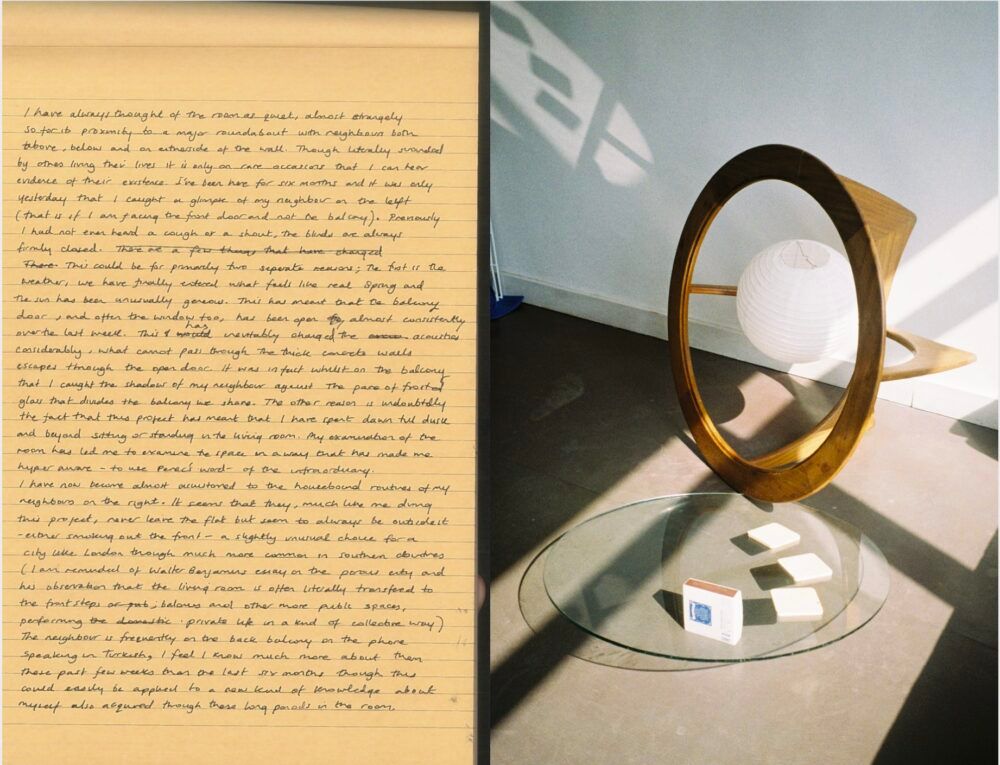 I have always thought of the room as quiet, almost strangely
so for its proximity to a major roundabout with neighbours both
above, below and on eitherside of the wall. Though literally surrounded
by others living their lives it is only on rare occasions that I can hear
evidence of their existence. I've been here for six months and it was only
yesterday that I caught a glimpse of my neighbour on the left
(that is if I am facing the front door and not the balcony). Previously
I had not even heard a cough or a shout, the blinds are always
firmly closed. There are a few things that have changed
There This could be for primarily two seperate reasons; the first is the
weather, we have finally entered what feels like real Spring and
the sun has been unusually generous. This has meant that the balcony
door, and often the window too, has been open almost consistently
over the last week. This would has inevitably changed the acoustics
considerably, what cannot pass through the thick concrete walls
escapes through the open door. It was in fact whilst on the balcony
that I caught the shadow of my neighbour against the pane of frosted
glass that divides the balcony we share. The other reason is undoubtedly
the fact that this project has meant that I have spent dawn till dusk
and beyond sitting or standing in the living room. My examination of the
room has led me to examine the space in a way that has made me
hyper aware - to use Perec's word - of the infraordinary.
I have now become almost acustomed to the housebound routines of my
neighbours on the right. It seems that they, much like me during
this project, never leave the flat but seem to always be outside it
- either smoking out the front - a slightly unusual choice for a
city like London though much more common in southern countries
(I am reminded of Walter Benjamins essay on the porous city and
his observation that the living room is often literally transfered to
the front steps or balconies and other more public spaces,
performing the domestic private life in a kind of collective way)
The neighbour is frequently on the back balcony on the phone
speaking in Turkish, I feel I know much more about them
these past few weeks than the last six months though this
could easily be applied to a new kind of knowledge about
myself also acquired through these long periods in the room.